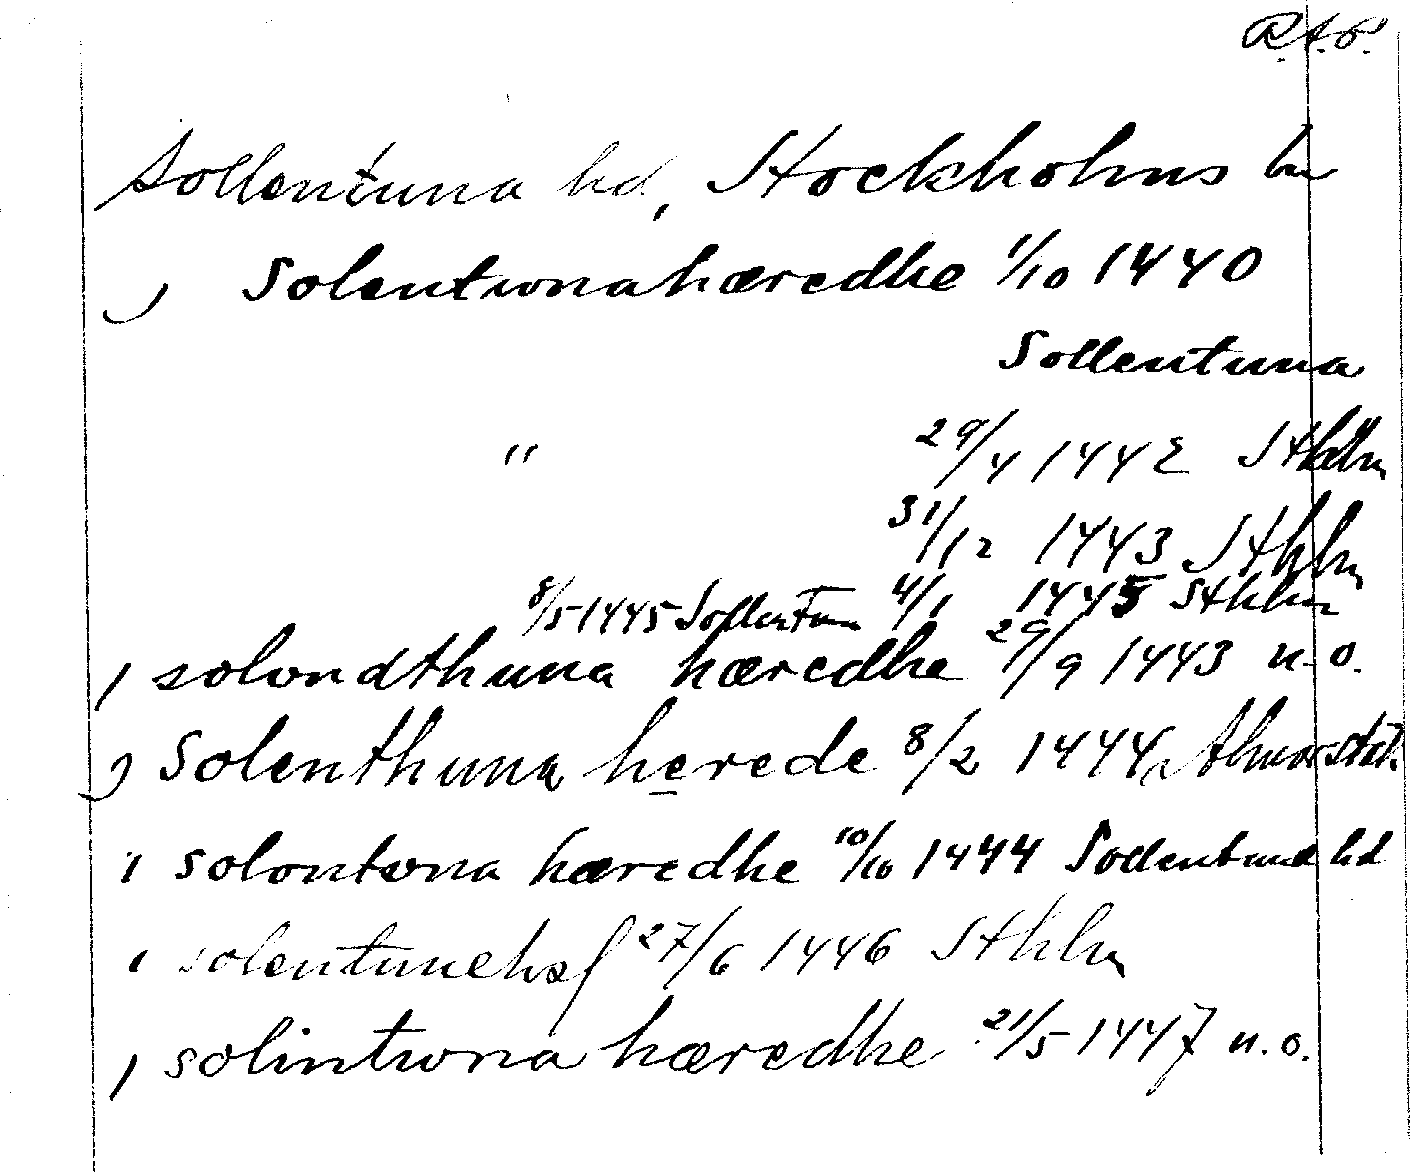 R.A.P.
Sollentuna hd, Stockholms län
J Solentwnahæredhe 1/10 1440
Sollentuna
" 29/4 1442 Sthlm
31/12 1443 Sthlm
8/5 1445 Sollentuna 4/1 1445 Sthlm
, solondthuna hæredhe 29/9 1443 u.o.
J Solenthuna herede 8/2 1444
i solontwna hæredhe 10/10 1444 Sollentuna hd
i solentunehæ 27/6 1446 Sthlm
, solintwna hæredhe 21/5 1447 u.o.